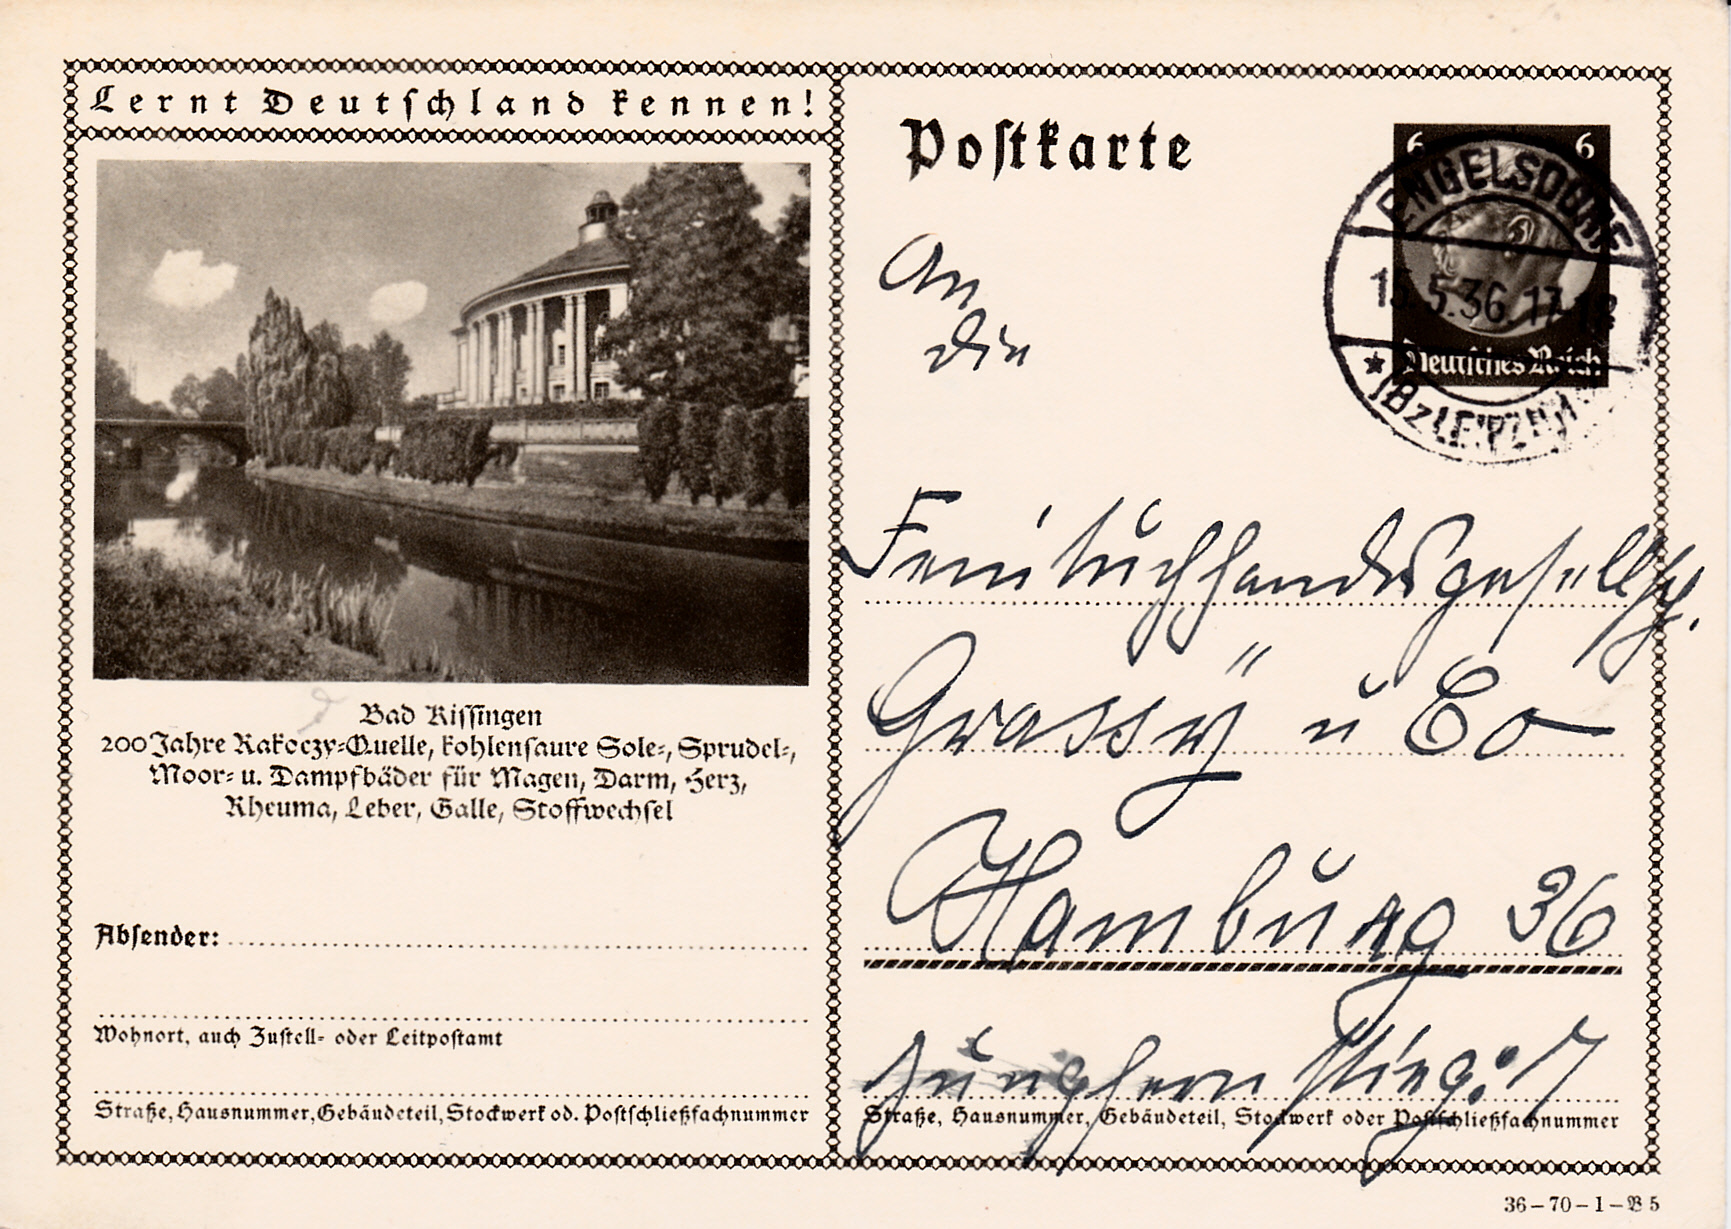 Lernt Deutschland kennen!
Bad Kissingen
200 Jahre Rakoczy-Quelle, kohlensaure Sole-, Sprudel-,
Moor- u. Dampfbäder für Magen, Darm, Herz,
Rheuma, Leber, Galle, Stoffwechsel
Absender:
Wohnort, auch Zustell- oder Leitpostamt
Straße, Hausnummer, Gebäudeteil, Stockwerk od. Postschließfachnummer
Postkarte
6 6
Deutsches Reich
ENGELSDORF
5.36.17-18
* (Bz LEIPZIG)
An
die
Feintuchhandelsgesellsch.
Grassy u Co
Hamburg 36
Jungfernstieg: 7
Straße, Hausnummer, Gebäudeteil, Stockwerk oder Postschließfachnummer
36-70-1-B 5